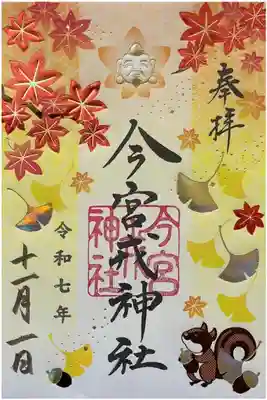 奉拝
今宮戎神社
今宮
神社
令和七年
十一月一日